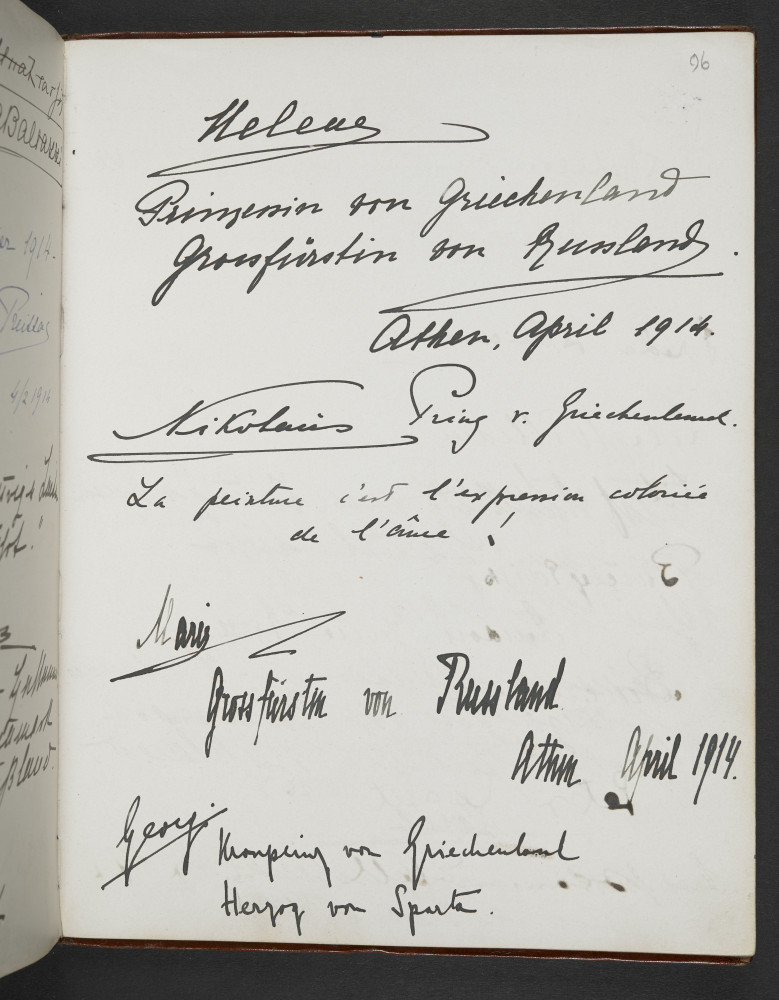 96
Helene
Prinzessin von Griechenland
Grossfürstin von Russland.
Athen, April 1914.
Nikolaus Prinz v. Griechenland.
La peinture c'est l'expression coloriée
de l'âme !
Marie
Grossfürstin von Russland
Athen April 1914.
Georg.
Kronprinz von Griechenland
Herzog von Sparta.
er 1914.
4/2 1914